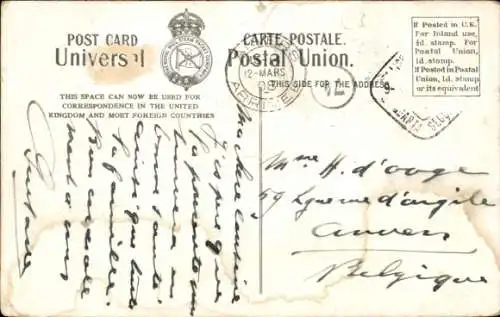 POST CARD
Universal
CARTE POSTALE.
Postal Union.
THIS SPACE CAN NOW BE USED FOR
CORRESPONDENCE IN THE UNITED
KINGDOM AND MOST FOREIGN COUNTRIES
THIS SIDE FOR THE ADDRESS
If Posted in U.K.
For Inland use,
½d. stamp. For
Postal Union,
1d. stamp.
If Posted in Postal
Union, 1d. stamp
or its equivalent
12-MARS
ARRIVEE
74
Ma chère cousine
J'espère que
la présente vous
trouvera en
bonne santé
ainsi que toute
la famille.
Bien cordiale
ment à vous
Gustave
Mme H. d'
59 Longue rue d'argile
Anvers
Belgique